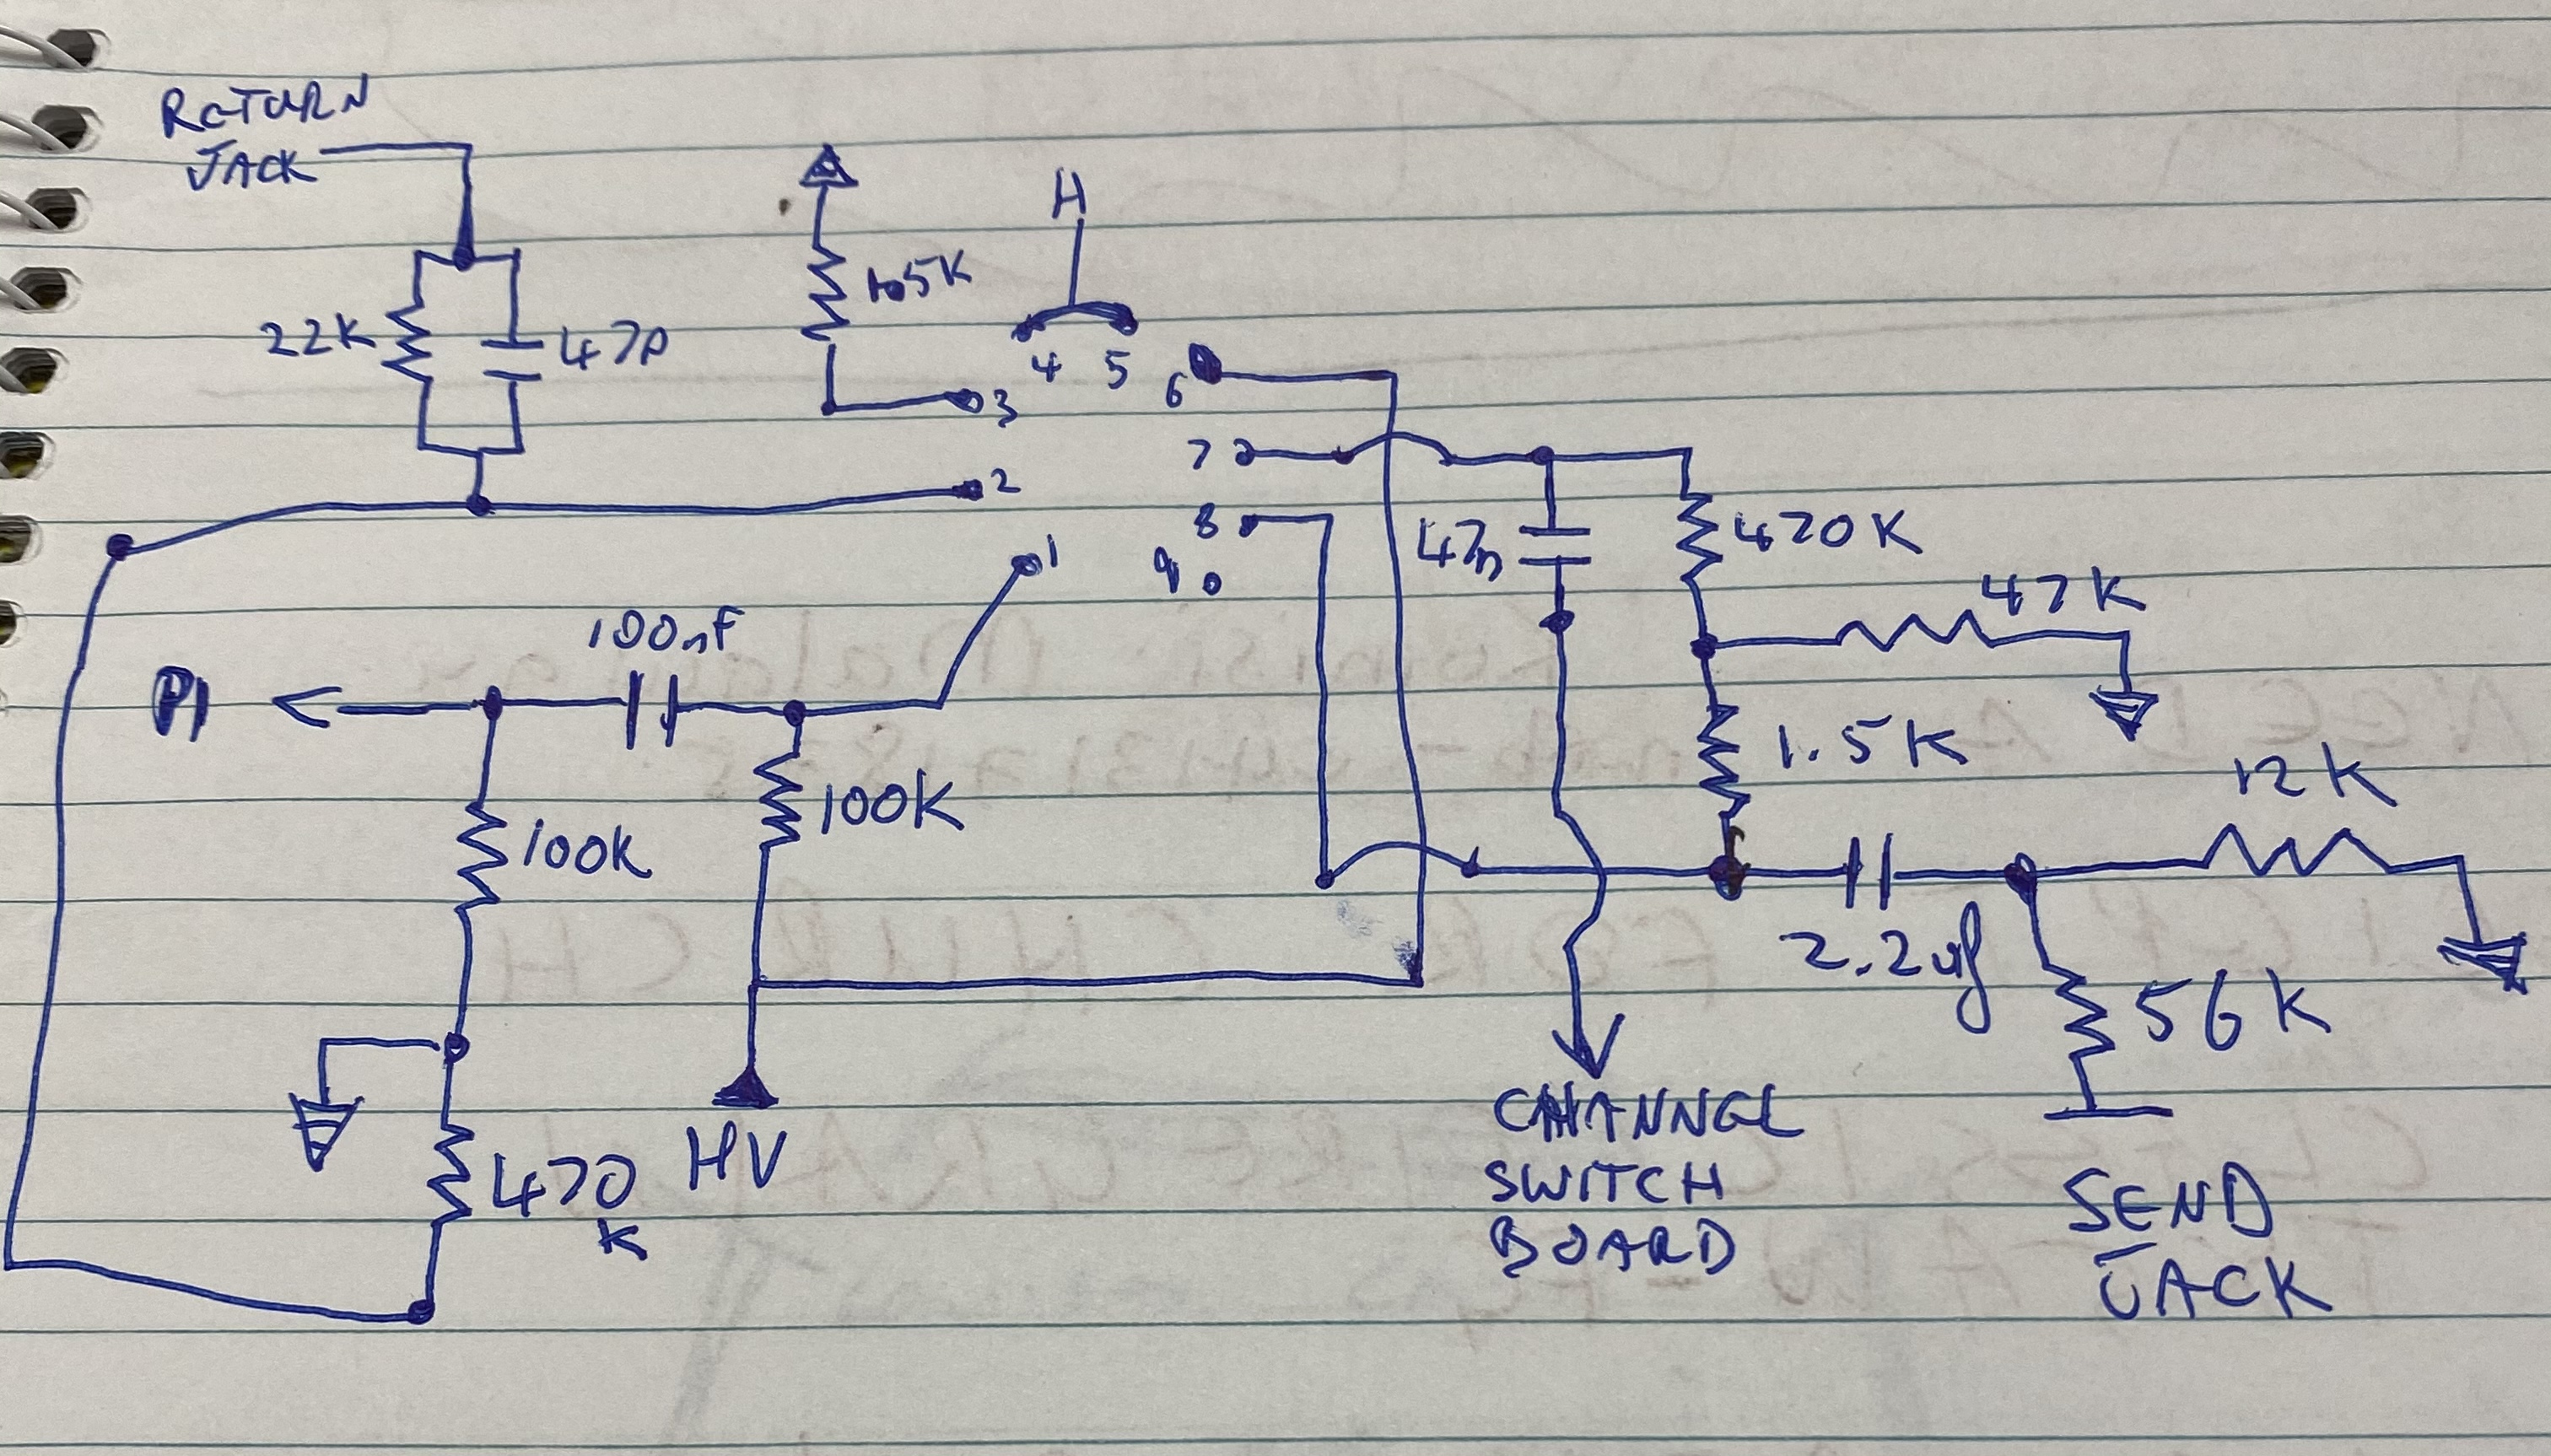 RETURN
JACK
H
1.5K
22K
47P
4
5
6
3
7
2
8
47n
470K
9
1
47K
100nF
PI
1.5K
12K
100K
100K
2.2uf
56K
CHANNEL
SWITCH
BOARD
HV
470
K
SEND
JACK